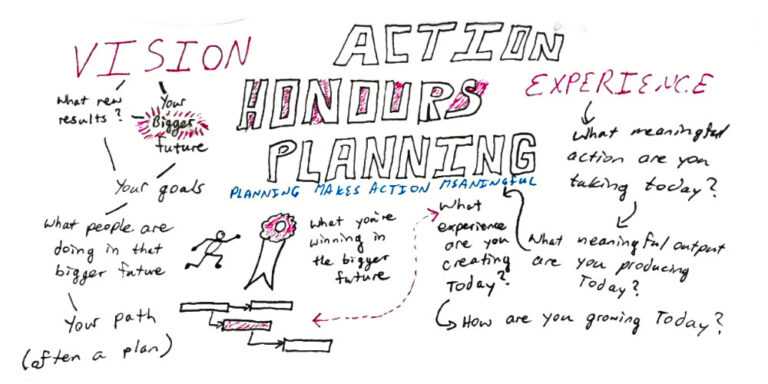 VISION
ACTION
HONOURS
PLANNING
PLANNING MAKES ACTION MEANINGFUL
EXPERIENCE
What new
results?
Your
Bigger
future
Your goals
What people are
doing in that
bigger future
Your path
(often a plan)
What you're
winning in
the bigger
future
What
experience
are you
creating
Today?
What meaningful
action are you
taking today?
What meaningful output
are you producing
Today?
How are you growing Today?